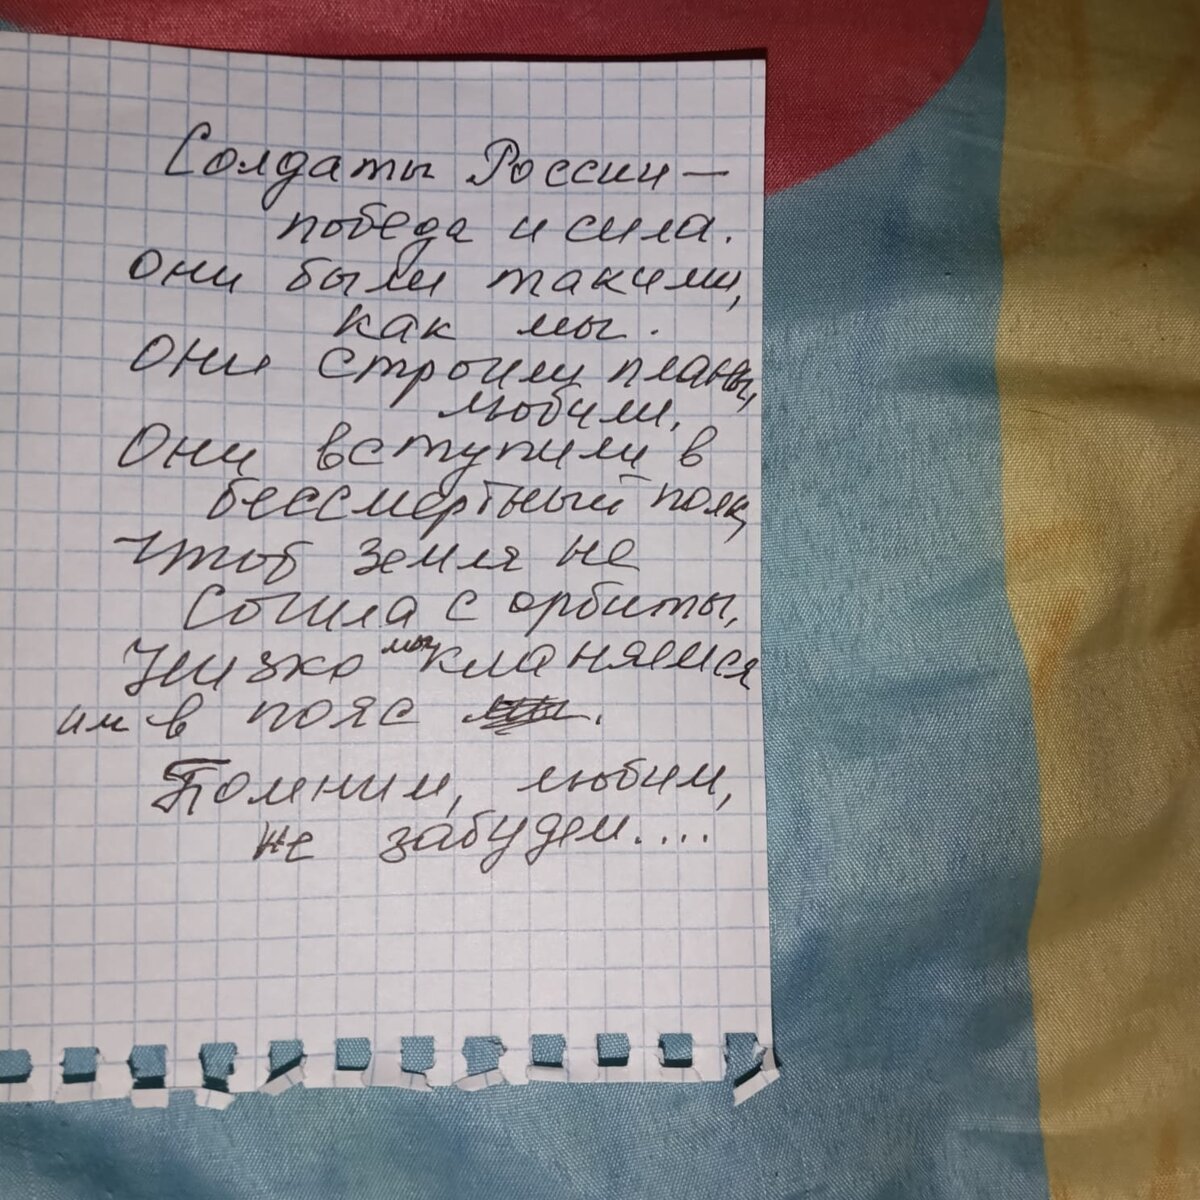 Солдаты России —
победа и сила.
Они были такими,
как мы.
Они строили планы,
любили,
Они вступили в
бессмертный полк,
Чтоб Земля не
сошла с орбиты,
Низко мы кланяемся
им в пояс.
Помним, любим,
не забудем....